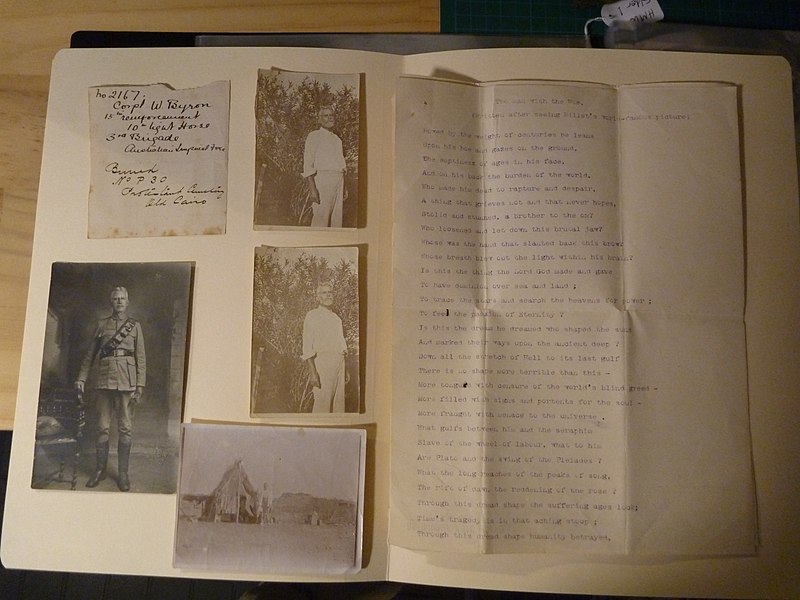 No 2167.
Corpl W Byron
15th reinforcement
10th Light Horse
3rd Brigade
Australian Imperial Force
Buried
No P 30
Protestant Cemetery
Old Cairo
The Man with the Hoe.
(Written after seeing Millet's world-famous picture)
Bowed by the weight of centuries he leans
Upon his hoe and gazes on the ground,
The emptiness of ages in his face,
And on his back the burden of the world.
Who made him dead to rapture and despair,
A thing that grieves not and that never hopes,
Stolid and stunned, a brother to the ox?
Who loosened and let down this brutal jaw?
Whose was the hand that slanted back this brow?
Whose breath blew out the light within his brain?
Is this the thing the Lord God made and gave
To have dominion over sea and land ;
To trace the stars and search the heavens for power ;
To feel the passion of Eternity ?
Is this the dream he dreamed who shaped the suns
And marked their ways upon the ancient deep ?
Down all the stretch of Hell to its last gulf
There is no shape more terrible than this -
More tongued with censure of the world's blind greed -
More filled with signs and portents for the soul -
More fraught with menace to the universe .
What gulfs between him and the seraphim
Slave of the wheel of labour, what to him
Are Plato and the swing of the Pleiades ?
What the long reaches of the peaks of song,
The rift of dawn, the reddening of the rose ?
Through this dread shape the suffering ages look;
Time's tragedy is in that aching stoop ;
Through this dread shape humanity betrayed,